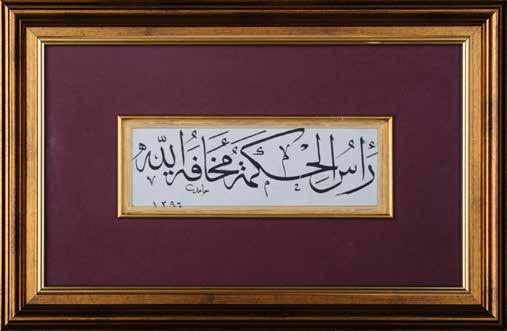 رَأْسُ الْحِكْمَةِ مَخَافَةُ اللّٰهِ
حامد
١٣٩٦